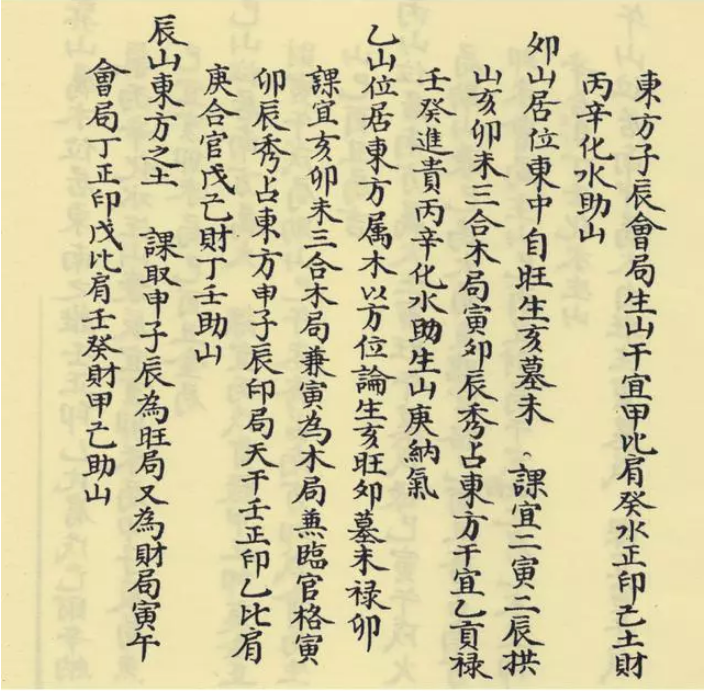 東方子辰會局生山干宜甲比肩癸水正印己土財
丙辛化水助山
卯山居位東中自旺生亥墓未、課宜二寅二辰拱
山亥卯未三合木局寅卯辰秀占東方干宜乙貢禄
壬癸進貴丙辛化水助生山庚納氣
乙山位居東方属木以方位論生亥旺卯墓未禄卯
課宜亥卯未三合木局兼寅為木局無臨官格寅
卯辰秀占東方申子辰印局天干壬正印乙比肩
庚合官戊己財丁壬助山
辰山東方之土 課取申子辰為旺局又為財局寅午
會局丁正印戊比肩壬癸財甲己助山